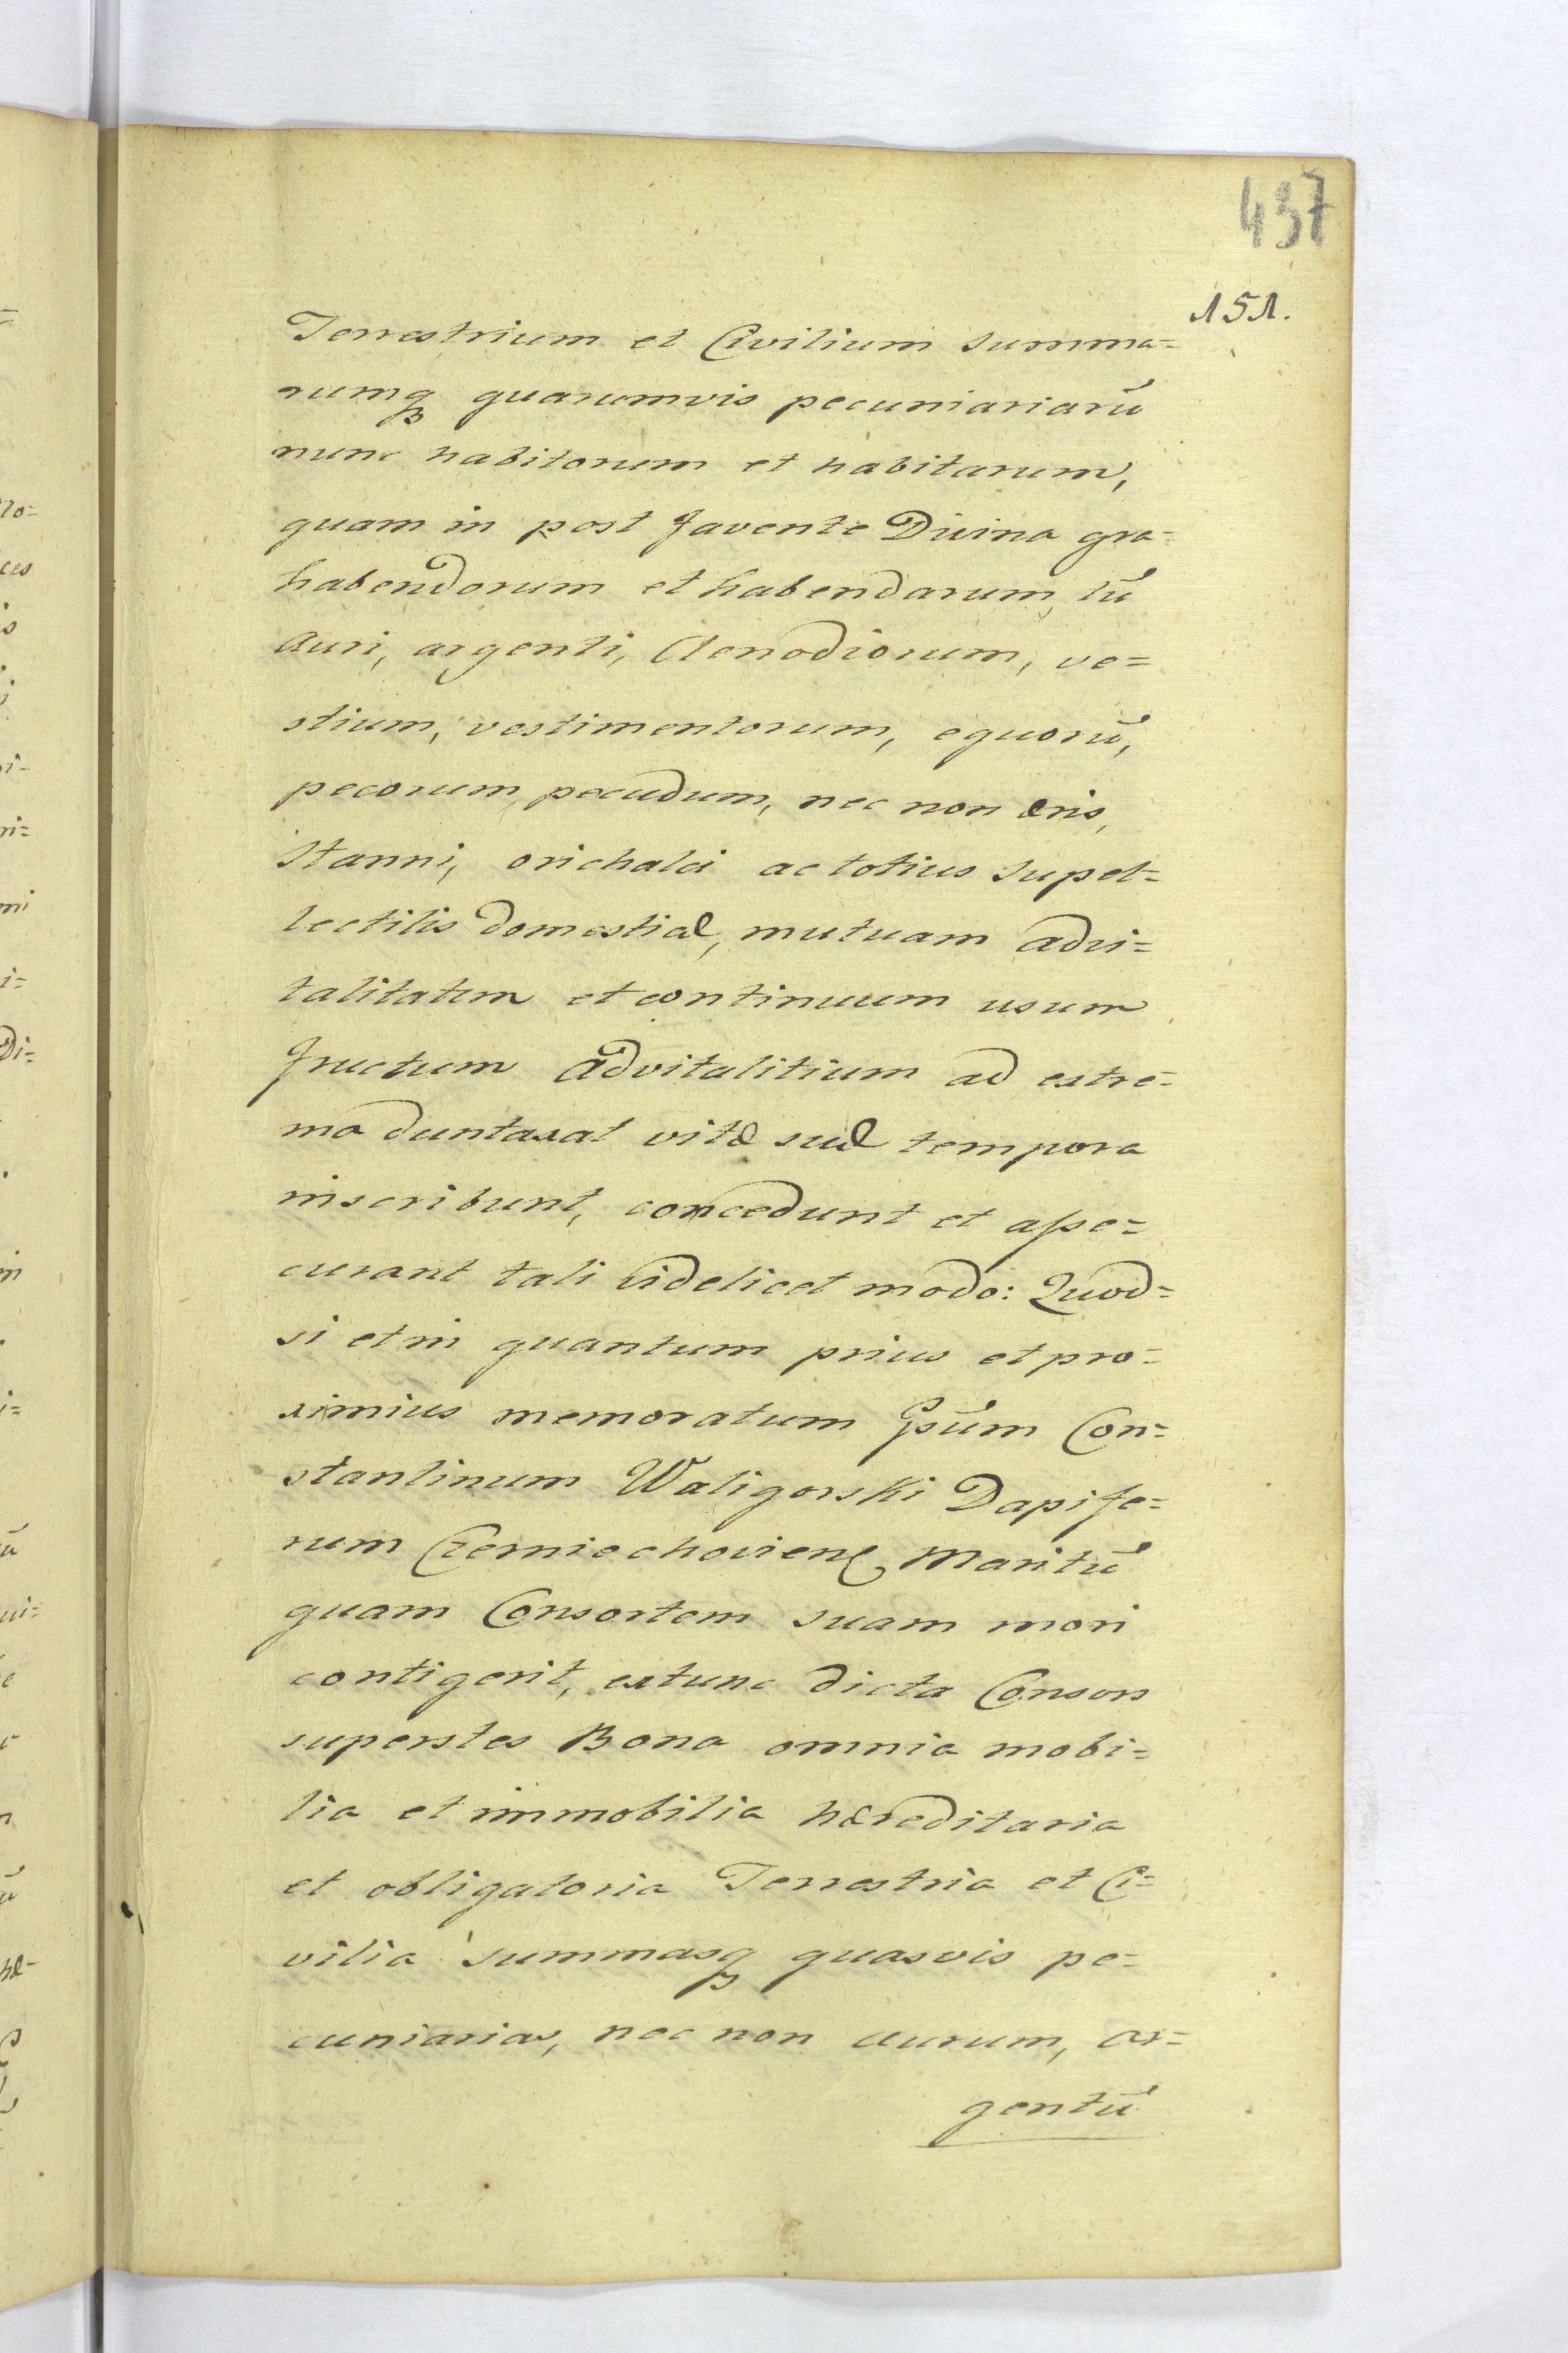 437
151.
Terrestrium et Civilium summa=
rumqȝ quarumvis pecuniariarū
nunc habitorum et habitarum,
quam in post favente Divina gra=
habendorum et habendarum, tū
auri, argenti, clenodiorum, ve=
stium, vestimentorum, equorū,
pecorum, pecudum, nec non æris,
stanni, orichalci ac totius supel=
lectilis domesticæ, mutuam advi=
talitatem et continuum usum
fructum advitalitium ad extre=
ma duntaxat vitæ suæ tempora
inscribunt, concedunt et asse=
curant tali videlicet modo: Quod=
si et in quantum prius et pro=
ximius memoratum Gsūm Con=
stantinum Waligorski Dapife=
rum Czerniechovienȩ Maritū
quam Consortem suam mori
contigerit, extunc dicta Consors
superstes Bona omnia mobi=
lia et immobilia hæreditaria
et obligatoria Terrestria et Ci=
vilia summasqȝ quasvis pe=
cuniarias, nec non aurum, ar=
gentū